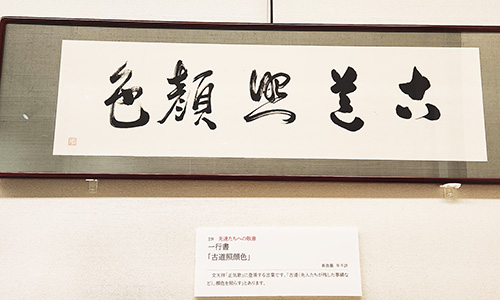 古道照顔色
19 先達たちへの敬慕
一行書
「古道照顔色」
年不詳
文天祥「正気歌」に登場する言葉です。「古道（先人たちが残した事績な
ど）、顔色を照らす」とあります。